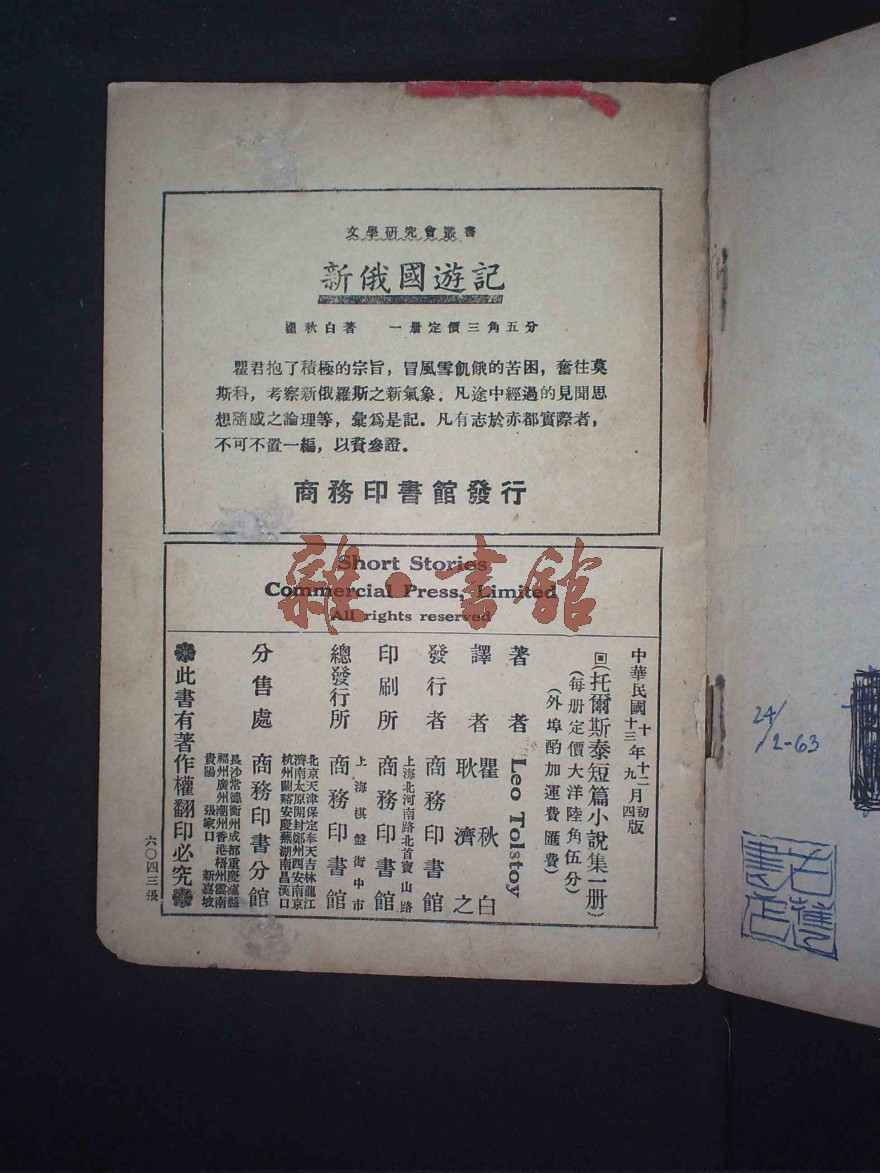 文學研究會叢書
新俄國遊記
瞿秋白著 一册定價三角五分
瞿君抱了積極的宗旨，冒風雪飢餓的苦困，奮往莫
斯科，考察新俄羅斯之新氣象．凡途中經過的見聞思
想隨感之論理等，彙爲是記．凡有志於赤都實際者，
不可不置一編，以資參證。
商務印書館發行
Short Stories
Commercial Press, Limited
All rights reserved
雜·書館
中華民國十年十二月初版
十三年九月四版
(托爾斯泰短篇小說集一册)
(每册定價大洋陸角伍分)
(外埠酌加運費匯費)
著者 Leo Tolstoy
譯者 瞿秋白
耿濟之
發行者 商務印書館
上海北河南路北首寶山路
印刷所 商務印書館
上海棋盤街中市
總發行所 商務印書館
北京天津保定奉天吉林龍江
濟南太原開封鄭州西安南京
杭州蘭谿安慶蕪湖南昌漢口
分售處 商務印書分館
長沙常德衡州成都重慶瀘縣
福州廣州潮州香港梧州雲南
貴陽 張家口 新嘉坡
此書有著作權翻印必究
六〇四三張
24/2-63